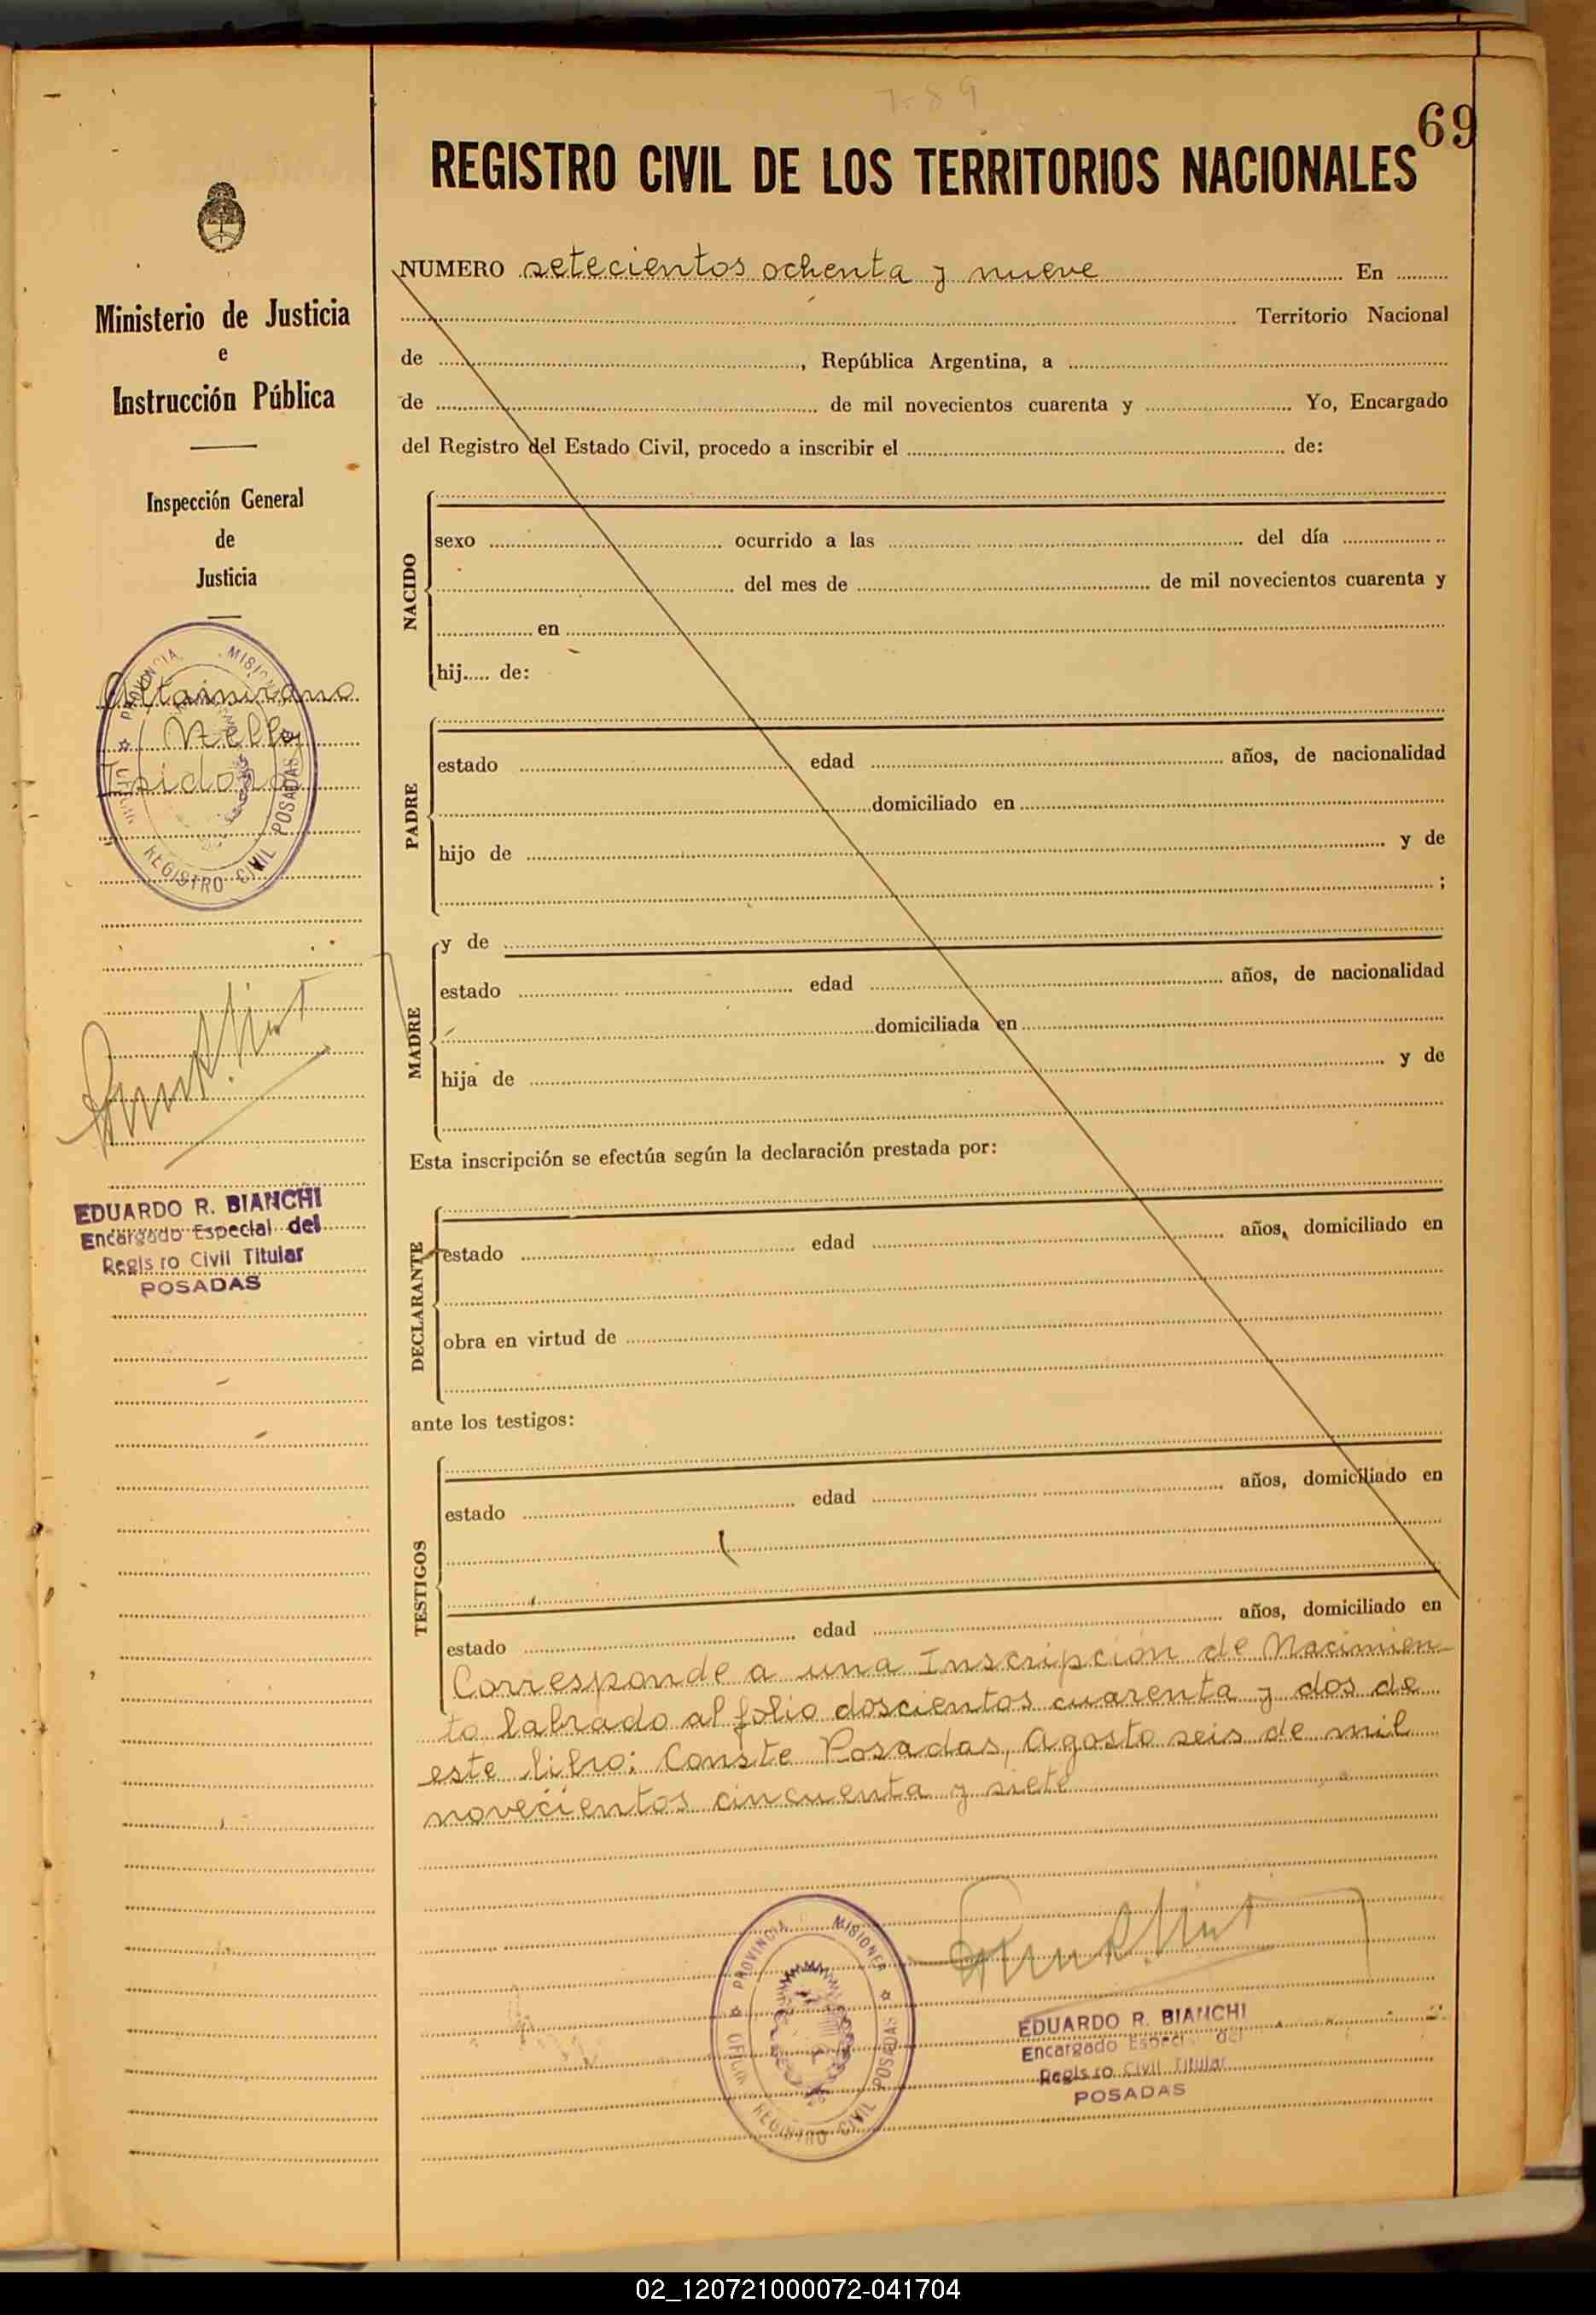 7-89
69
REGISTRO CIVIL DE LOS TERRITORIOS NACIONALES
Ministerio de Justicia
e
Instrucción Pública
Inspección General
de
Justicia
Altamirano
Nelly
Isidora
PROVINCIA MISIONES
REGISTRO CIVIL POSADAS
EDUARDO R. BIANCHI
Encargado Especial del
Regis ro Civil Titular
POSADAS
NUMERO setecientos ochenta y nueve En
Territorio Nacional
de , República Argentina, a
de de mil novecientos cuarenta y Yo, Encargado
del Registro del Estado Civil, procedo a inscribir el de:
NACIDO
sexo ocurrido a las del día
del mes de de mil novecientos cuarenta y
en
hij..... de:
PADRE
estado edad años, de nacionalidad
domiciliado en
hijo de y de
;
MADRE
y de
estado edad años, de nacionalidad
domiciliada en
hija de y de
Esta inscripción se efectúa según la declaración prestada por:
DECLARANTE
estado edad años, domiciliado en
obra en virtud de
ante los testigos:
TESTIGOS
estado edad años, domiciliado en
estado edad años, domiciliado en
Corresponde a una Inscripción de Nacimien-
to labrado al folio doscientos cuarenta y dos de
este libro: Conste Posadas, Agosto seis de mil
novecientos cincuenta y siete
PROVINCIA MISIONES
REGISTRO CIVIL POSADAS
EDUARDO R. BIANCHI
Encargado Especial del
Regis ro Civil Titular
POSADAS
02_120721000072-041704